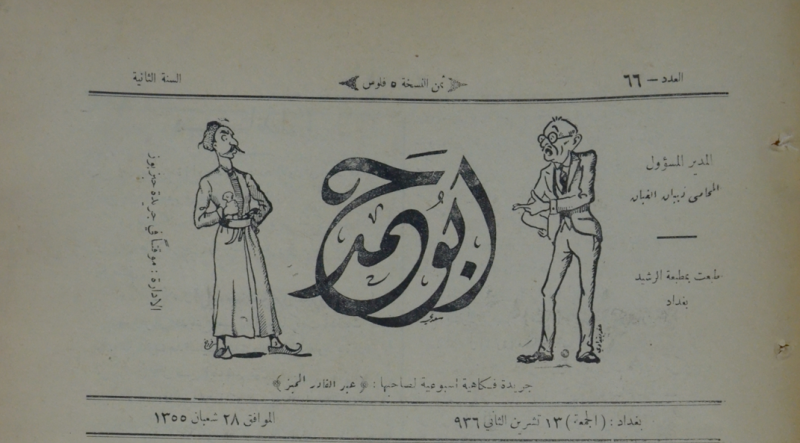 العدد — ٦٦
ثمن النسخة ٥ فلوس
السنة الثانية
المدير المسؤول
المحامي ذيبان الغبان
طبعت بمطبعة الرشيد
بغداد
ابو حمد
الادارة : موقتاً في جريدة حبزبوز
جريدة فكاهية اسبوعية لصاحبها : « عبد القادر المميز »
بغداد : ( الجمعة ) ١٣ تشرين الثاني ٩٣٦
الموافق ٢٨ شعبان ١٣٥٥